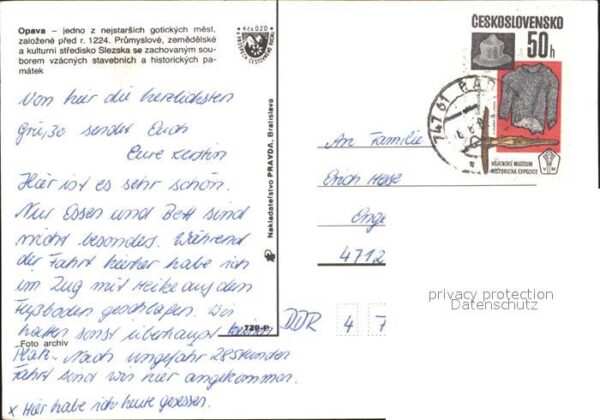 Opava – jedno z nejstarších gotických měst,
založené před r. 1224. Průmyslové, zemědělské
a kulturní středisko Slezska se zachovaným sou-
borem vzácných stavebních a historických pa-
mátek
Kčs 0,20
Von hier die herzlichsten
Grüße sendet Euch
Eure Kerstin
Hier ist es sehr schön.
Nur Essen und Bett sind
nicht besonders. Während
der Fahrt hierher habe ich
im Zug mit Heike auf dem
Fußboden geschlafen. Wir
hatten sonst überhaupt keinen
Platz. Nach ungefähr 28 Stunden
Fahrt sind wir hier angekommen.
x Hier habe ich heute gesessen.
Foto archív
Nakladateľstvo PRAVDA, Bratislava
ČESKOSLOVENSKO
50h
VOJENSKÉ MUZEUM
HISTORICKÁ EXPOZICE
747 61
An Familie
Erich Hesse
Enge
4712
DDR 4 7
privacy protection
Datenschutz